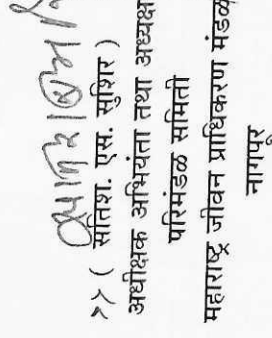 >> ( सतिश. एस. सुशिर )
अधीक्षक अभियंता तथा अध्यक्ष
परिमंडळ समिती
महाराष्ट्र जीवन प्राधिकरण मंडळ
नागपूर